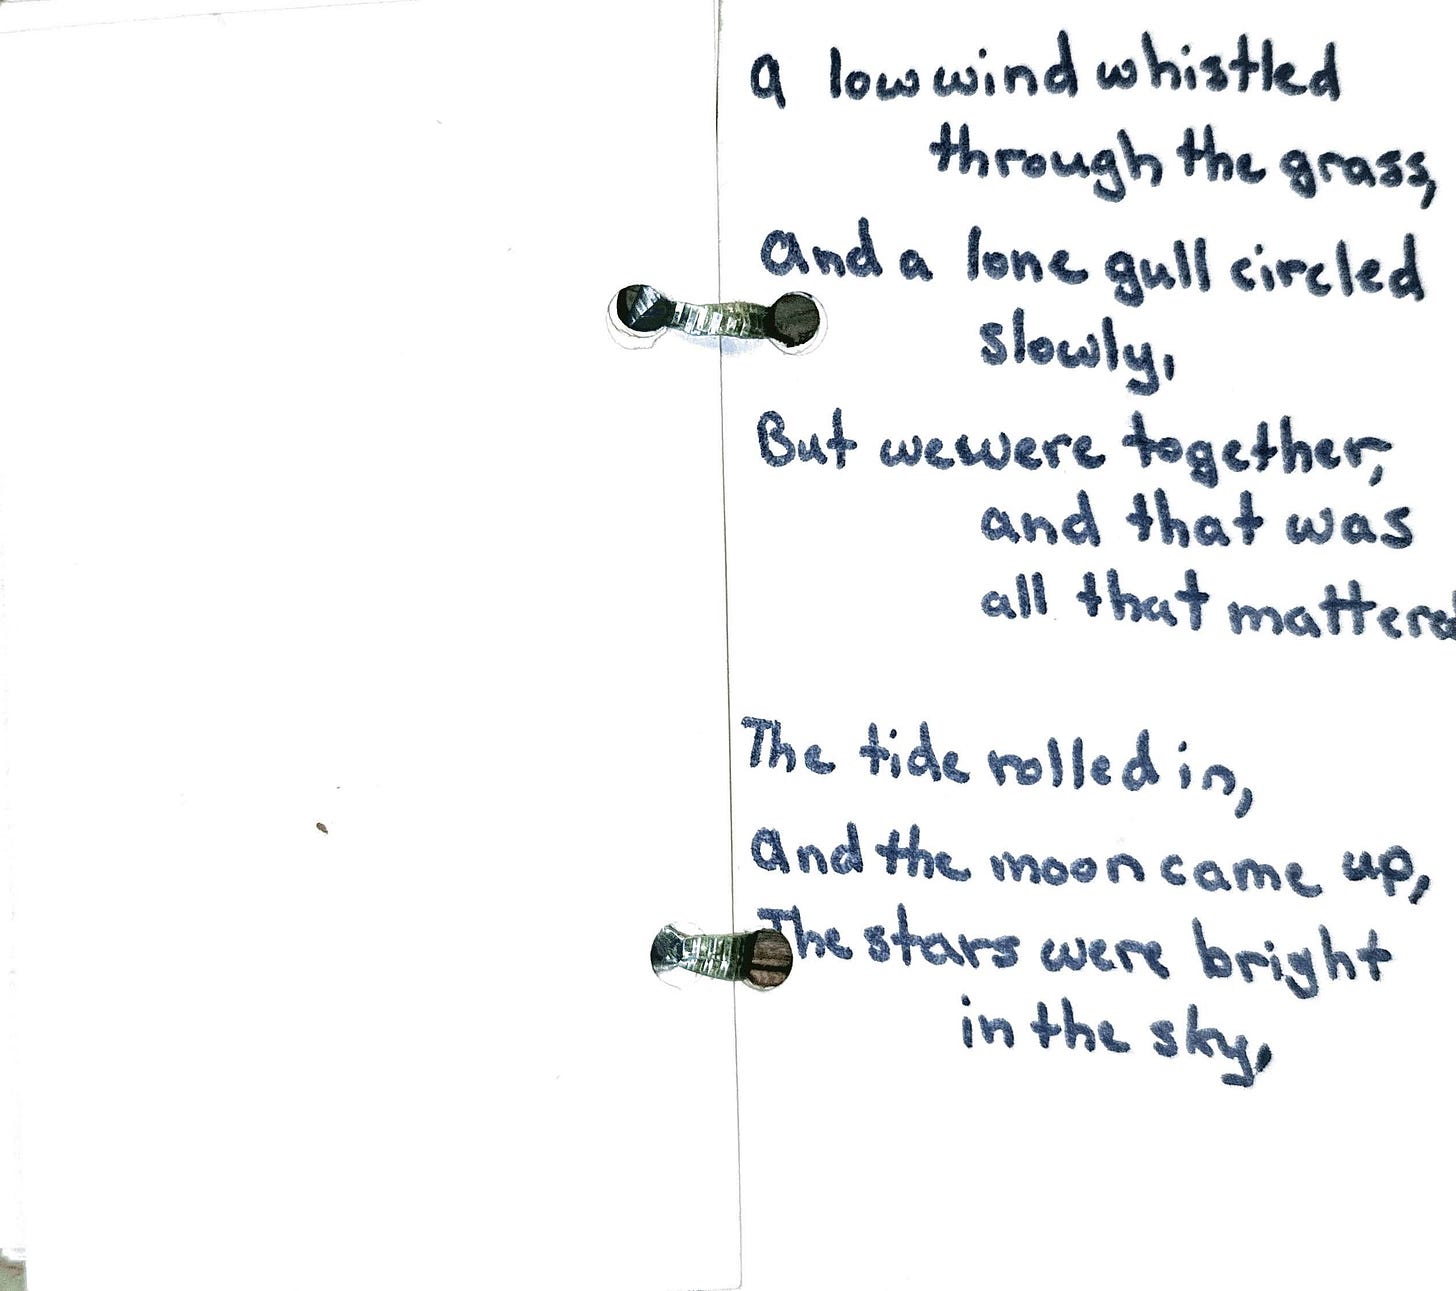 A low wind whistled
through the grass,
And a lone gull circled
slowly,
But we were together,
and that was
all that mattered
The tide rolled in,
And the moon came up,
The stars were bright
in the sky,